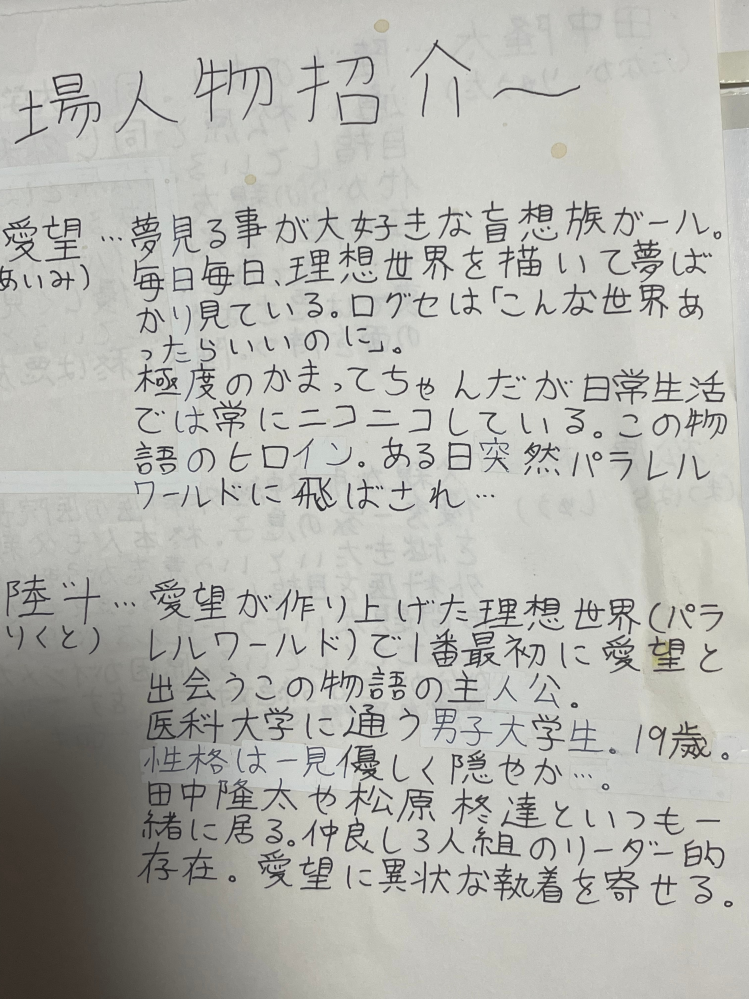 場人物招介〜
愛望…夢見る事が大好きな盲想族ガール。
あいみ) 毎日毎日、理想世界を描いて夢ば
かり見ている。ログセは「こんな世界あ
ったらいいのに」。
極度のかまってちゃんだが日常生活
では常にニコニコしている。この物
語のヒロイン。ある日突然パラレル
ワールドに飛ばされ…
陸斗…愛望が作り上げた理想世界(パラ
りくと) レルワールド)で1番最初に愛望と
出会うこの物語の主人公。
医科大学に通う男子大学生。19歳。
性格は一見優しく隠やか…。
田中隆太や松原柊達といつも一
緒に居る。仲良し3人組のリーダー的
存在。愛望に異状な執着を寄せる。